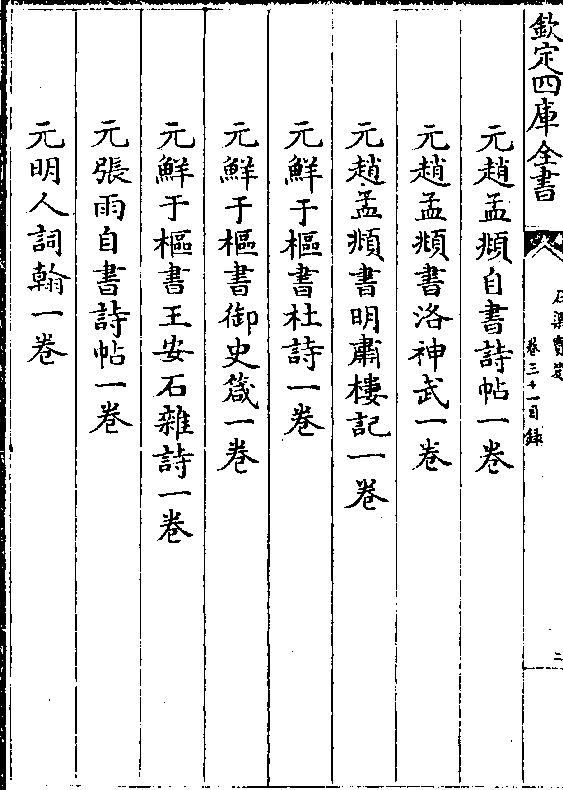 欽定四庫全書
石渠寶笈
卷三十一目録
二
元趙孟頫自書詩帖一卷
元趙孟頫書洛神武一卷
元趙孟頫書明肅樓記一卷
元鮮于樞書杜詩一卷
元鮮于樞書御史箴一卷
元鮮于樞書王安石雜詩一卷
元張雨自書詩帖一卷
元明人詞翰一卷